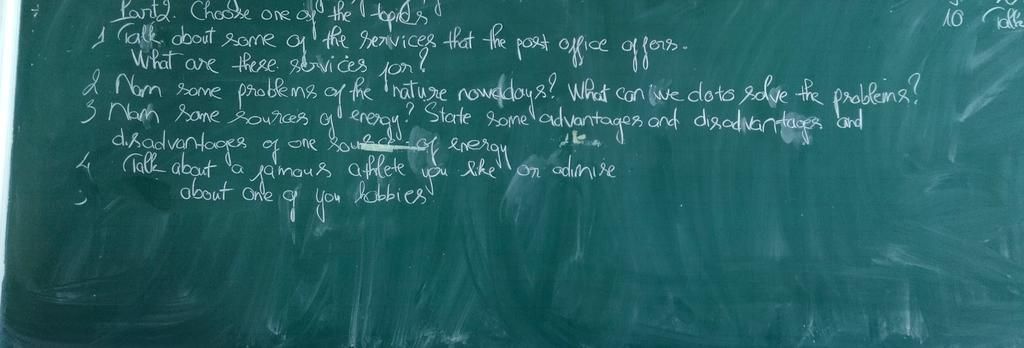 Part2. Choose one of the topics
1 Talk about some of the services that the post office offers.
What are these services for?
2 Nam some problems of the nature nowadays? What can we do to solve the problems?
3 Nam some sources of energy? State some advantages and disadvantages and
disadvantages of one of energy
4 Talk about a famous athlete you like or admire
about one of you hobbies
10 Talk